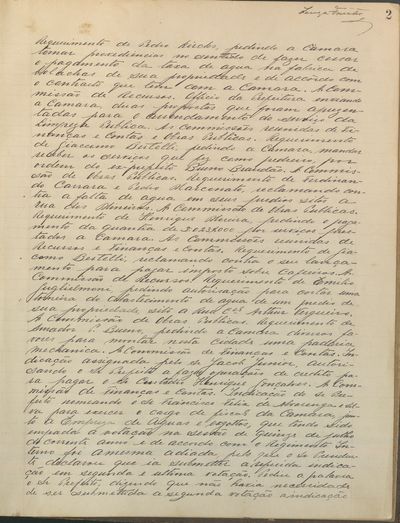 2
Requerimento de Pedro Kirchs, pedindo a Camara
tomar providencias no sentido de fazer cessar
o pagamento da taxa de agua na fabrica de
bolachas de sua propriedade e de accordo com
o contracto que tem com a Camara. A Com-
missão de Recursos. Officio da Prefeitura enviando
a Camara, duas propostas que foram apresen-
tadas para o arrendamento do serviço da
Limpeza Publica. As Commissões reunidas de Fi-
nanças e Contas e Obras Publicas. Requerimento
de Giacomo Bertolli, pedindo a Camara, mandar
receber os serviços que fez como pedreiro, por
ordem do ex-prefeito Bueno Brandão. A Commis-
são de Obras Publicas. Requerimento de
do Carrara e Pedro Marconato, reclamando con-
tra a falta de agua, em seus predios sitos a
rua dos Almeidas. A Commissão de Obras Publicas.
Requerimento de Henrique pedindo o paga-
mento da quantia de por serviços pres-
tados a Camara. As Commissões reunidas de
Recursos e Finanças e Contas. Requerimento de Gia-
como Bertolli, reclamando contra o seu lança-
mento para pagar imposto sobre Cafeeiros. A
Commissão de Recursos. Requerimento de Emilio
Guglielmoni pedindo autorisação para collocar uma
torneira de abastecimento de agua de um predio de
sua propriedade, sito a rua Cel. Arthur
A Commissão de Obras Publicas. Requerimento de
Amador P. Bueno, pedindo a Camara diversos fa-
vores para montar nesta cidade uma padaria
mechanica. A Commissão de Finanças e Contas. In-
dicação assignada pelo sr Jacob Junior, auctori-
sando o Sr Prefeito a fazer operações de credito pa-
ra pagar o Sr Contador Henrique Gonçalves. A Com-
missão de Finanças e Contas. Indicação do Sr Pre-
feito nomeando o Sr Francisco Felix de
va para exercer o cargo de fiscal da Camara, jun-
to a Empreza de Aguas e exgottos, que tendo sido
empatada a votação na sessão de quinze de Julho
do corrente anno e de accordo com o Regimento In-
terno foi a mesma adiada pelo que o Sr Presiden-
te declarou que ia submetter a referida indica-
ção em segunda e ultima votação. Pediu a palavra
o Sr Prefeito, dizendo que não havia necessidade
de ser submettida a segunda votação a indicação